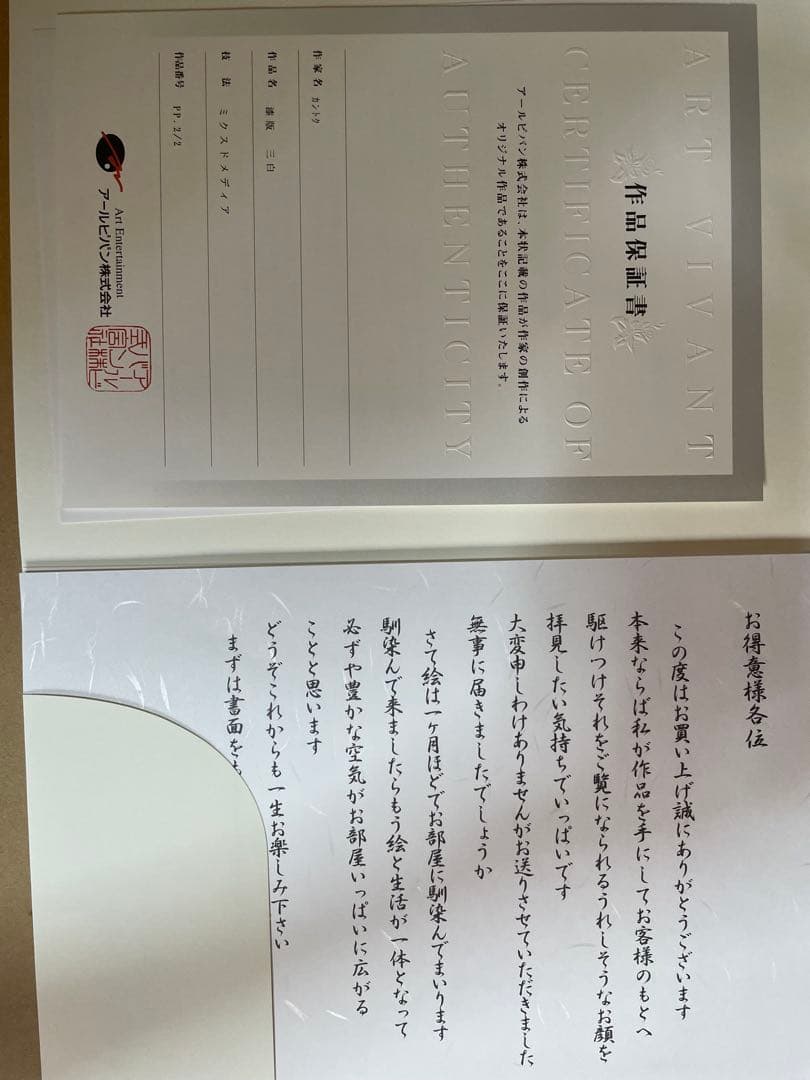 ART VIVANT
CERTIFICATE OF
AUTHENTICITY
作品保証書
アールビバン株式会社は、本状記載の作品が作家の創作による
オリジナル作品であることをここに保証いたします。
作家名 カントク
作品名 漆版 三白
技法 ミクスドメディア
作品番号 PP. 2/2
Art Entertainment
アールビバン株式会社
お得意様各位
この度はお買い上げ誠にありがとうございます
本来ならば私が作品を手にしてお客様のもとへ
駆けつけそれをご覧になられるうれしそうなお顔を
拝見したい気持ちでいっぱいです
大変申しわけありませんがお送りさせていただきました
無事に届きましたでしょうか
さて絵は一ヶ月ほどでお部屋に馴染んでまいります
馴染んで来ましたらもう絵と生活が一体となって
必ずや豊かな空気がお部屋いっぱいに広がる
ことと思います
どうぞこれからも一生お楽しみ下さい
まずは書面をも